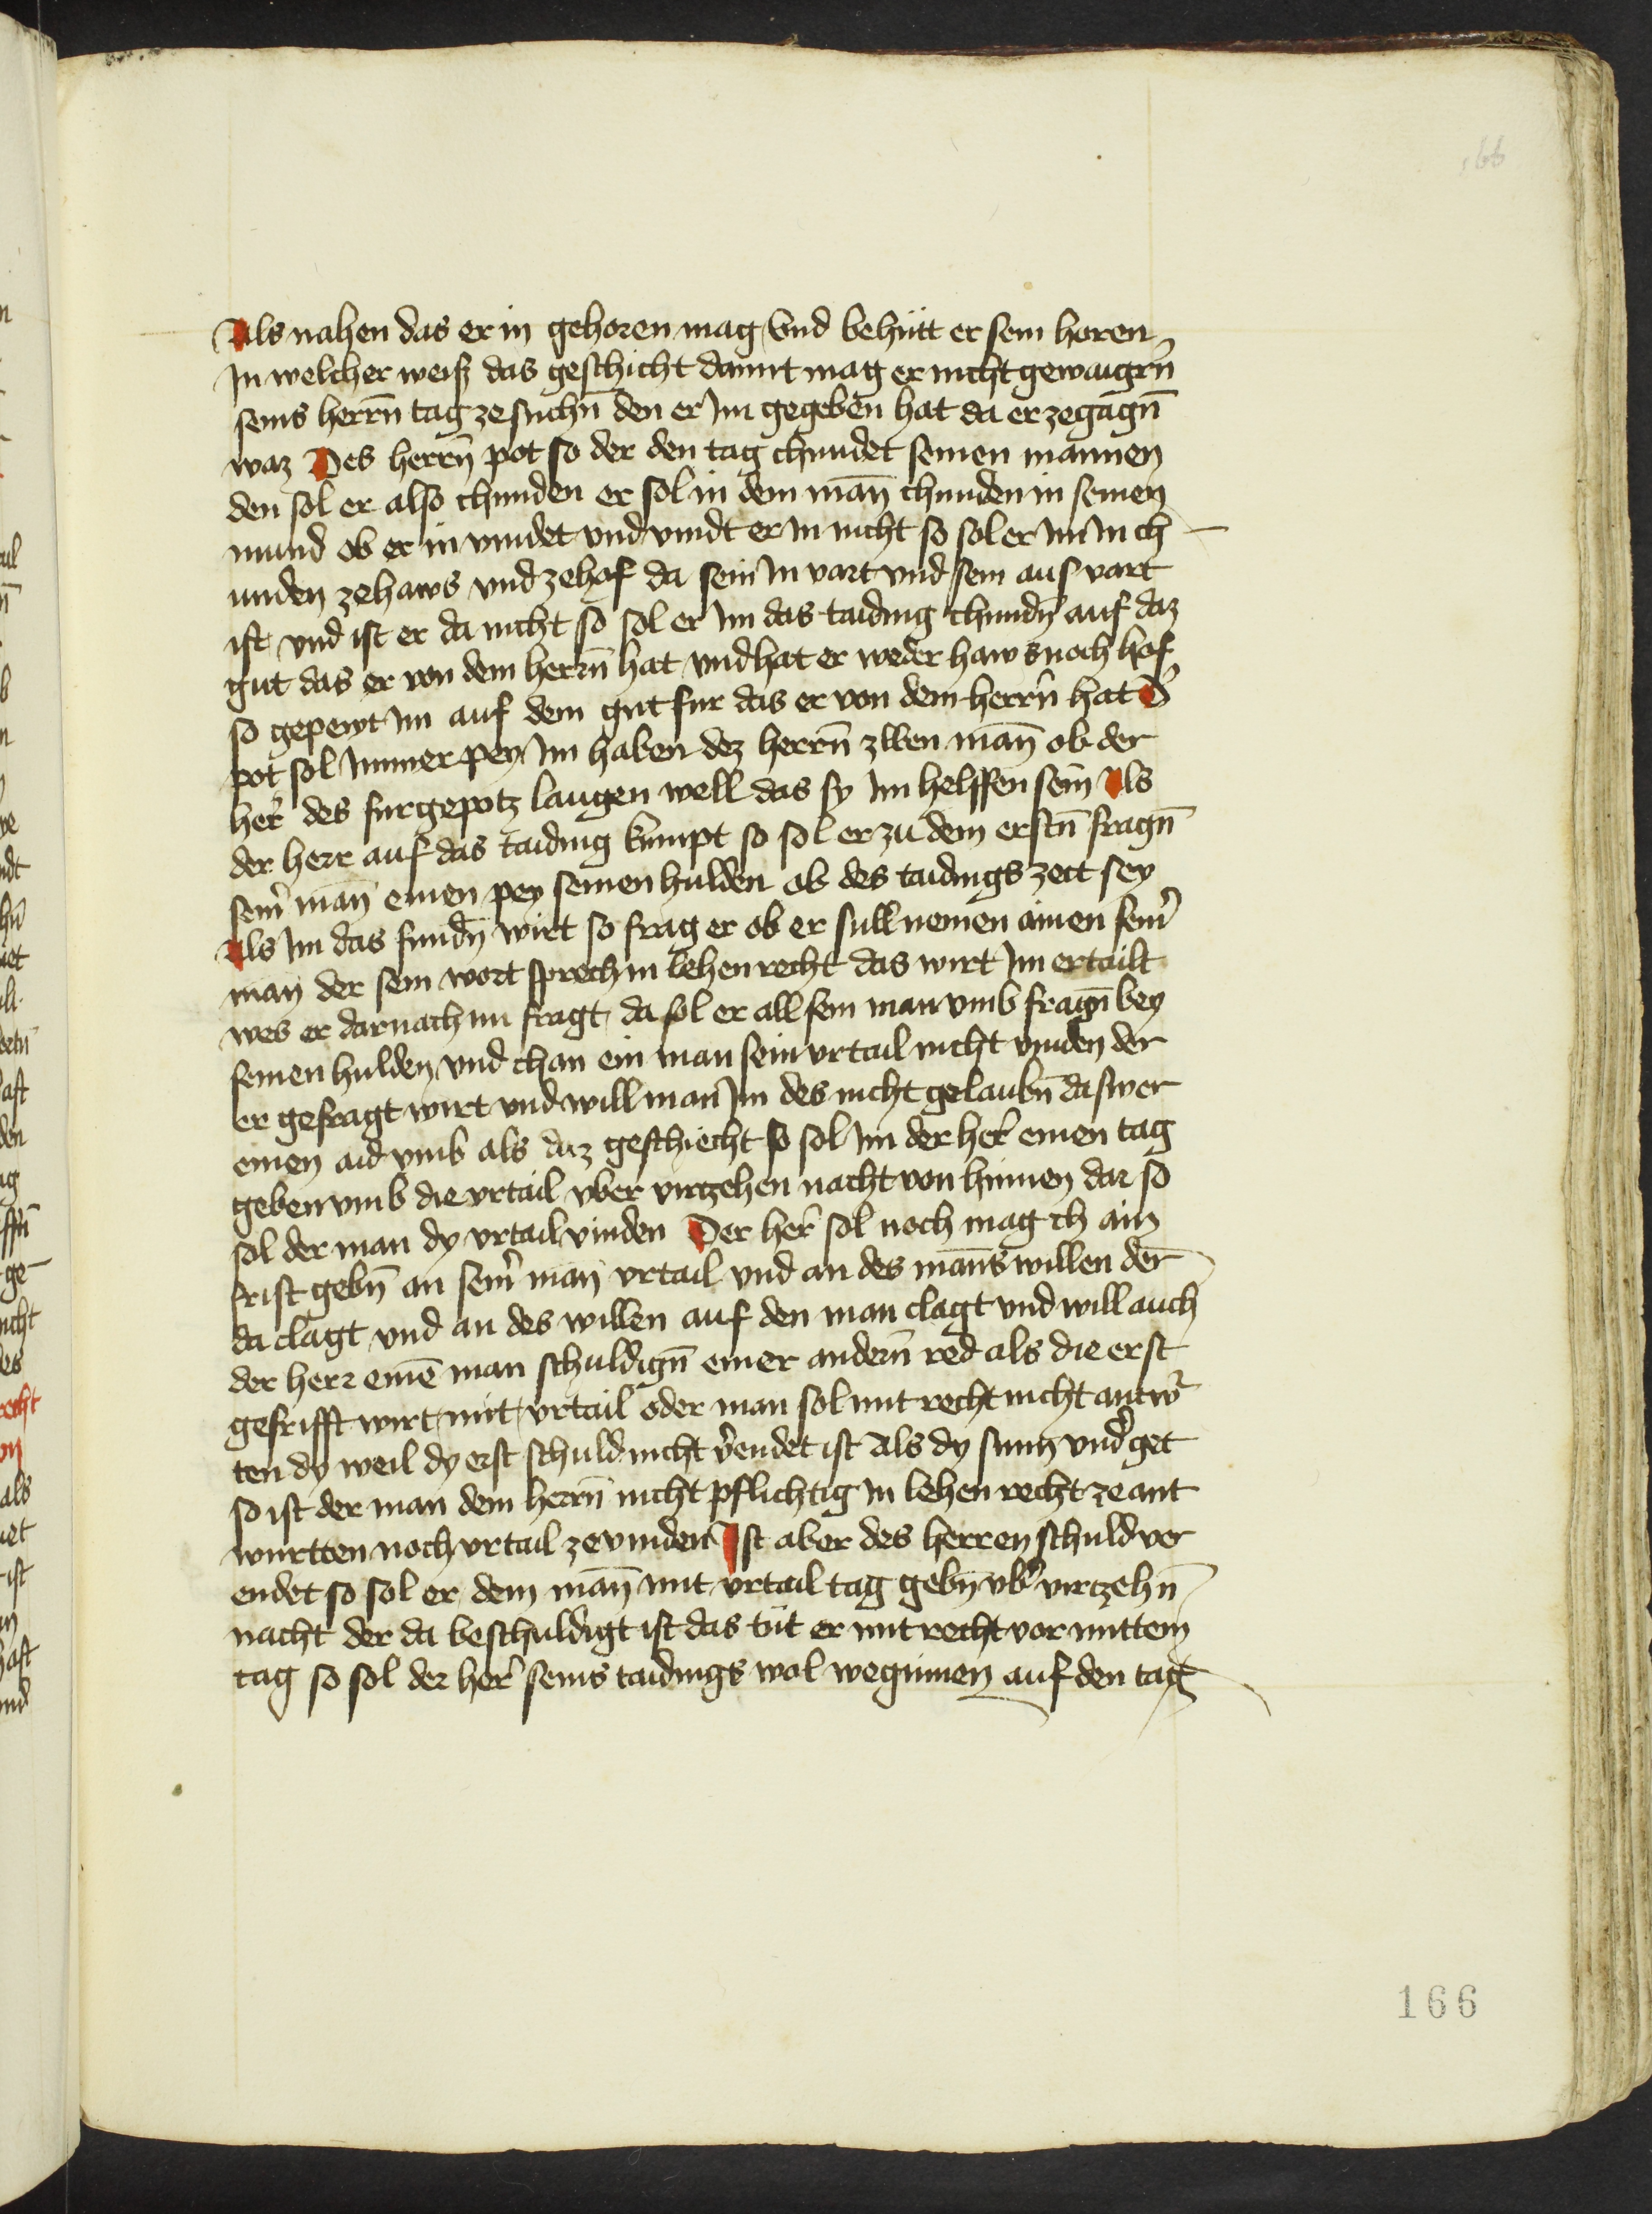 166
Als nahen das er in gehoren mag Vnd behütt er sein horen
In welcher weiss das geschicht damit mag er nicht gewaigrn̄
seins herrn̄ tag ze suchn̄ den er Im gegeben hat da er zegagn̄
waz Des herrn̄ pot so der den tag chundet seinen mannen
den sol er also chunden er sol in dem man̄ chunden in seinen
mund ob er in vindet vnd vindt er In nicht so sol er Im In ch
unden ze haws vnd ze hof da sein In vart vnd sein aus vart
ist vnd ist er da nicht so sol er Im das taiding chundn̄ auf daz
gut das er von dem herrn̄ hat vnd hat er weder haws noch hof
so gepewt Im auf dem gut fur das er von dem herrn̄ hat D̛
pot sol Immer pey Im haben dez herrn̄ zwen man̄ ob der
her̛ des furgepotz laugen well das sy Im helffen sein Als
der herr auf das taiding kumpt so sol er zu dem erstn̄ fragn̄
sein̛ man̄ einen pey seinen hulden ob des taidings zeit sey
Als Im das fundn̄ wirt so frag er ob er sull nemen ainen sein̛
man der sein wort sprech in lehenrecht das wirt Im ertailt
wes er darnach Im fragt da sol er all sein man vmb fragn̄ bey
seinen hulden vnd chan ein man sein vrtail nicht vinden der
er gefragt wirt vnd will man Im des nicht gelaubn̄ da swer
einen aid vmb als daz geschiecht so sol Im der her̛ einen tag
geben vmb die vrtail vber virtzehen nacht von hinnen dar so
sol der man dy vrtail vinden Der her̛ sol noch mag ch ain
frist gebn̄ an sein̛ man vrtail vnd an des man̄s willen der
da clagt vnd an des willen auf den man clagt vnd will auch
der herr einē man schuldign̄ einer andern̄ red als die erst
gefrifft wirt mit vrtail oder man sol mit recht nicht antw̛
ten dy weil dy erst schuld nicht v̛endet ist Als dy sunn vnd̛get
so ist der man dem herrn̄ nicht pflichtig In lehen recht ze ant
wurtten noch vrtail ze vinden Ist aber des herren schuld ver
endet so sol er dem man̄ mit vrtail tag gebn̄ vb̛ virtzehn̄
nacht der da beschuldigt ist das tüt er mit recht vor mittem
tag so sol der her̛ seins taidings wol weginnen auf den tag
166